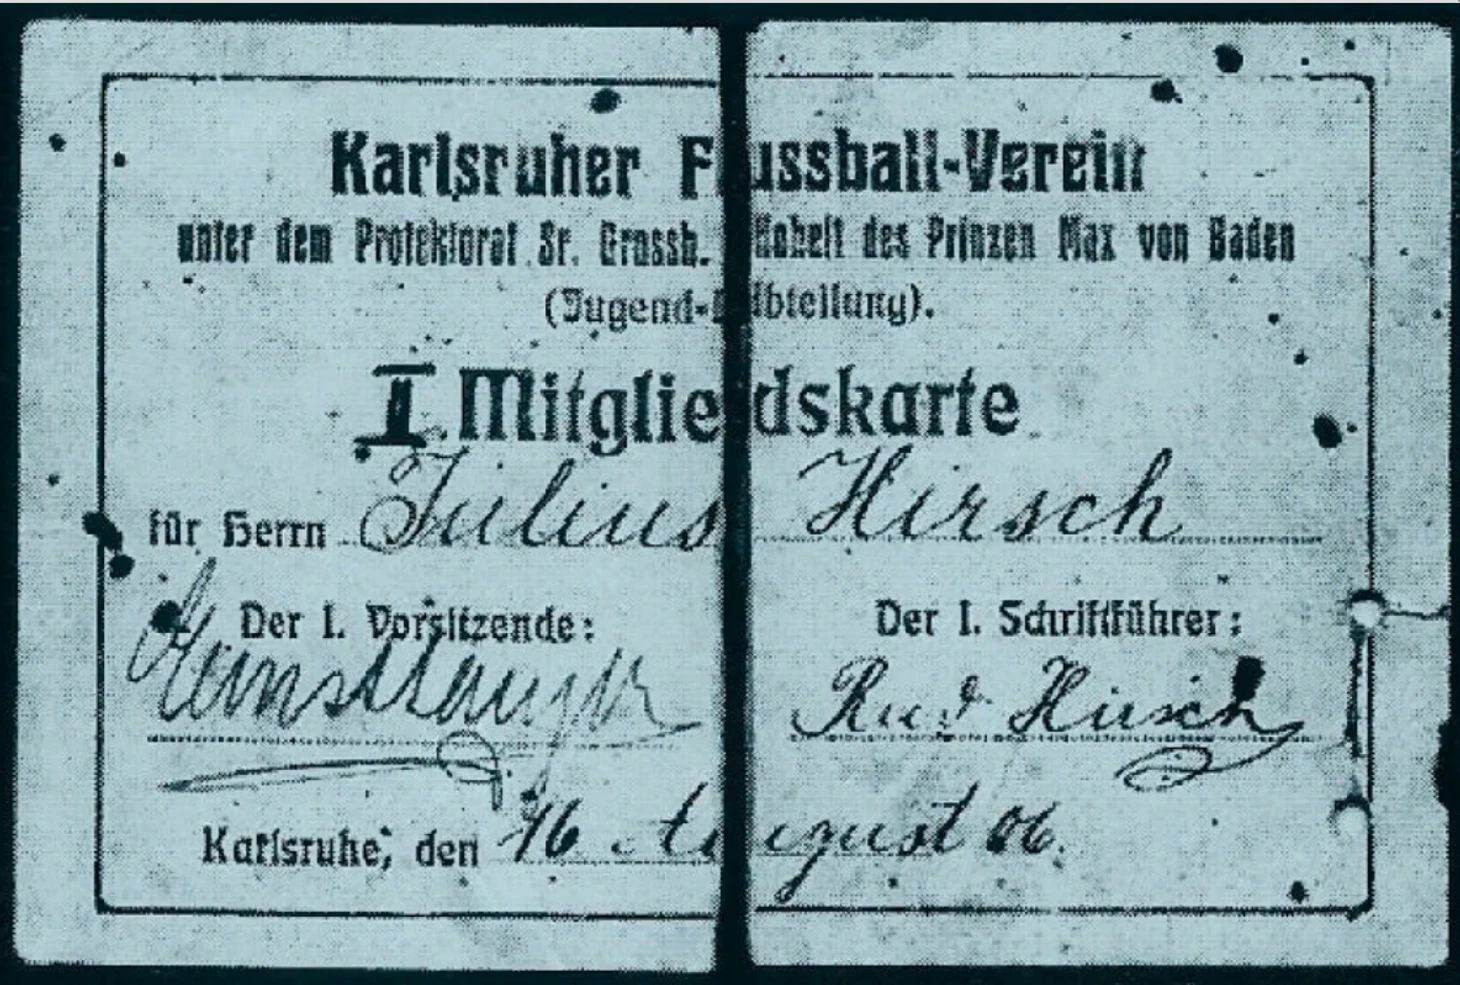 Karlsruher Fussball-Verein
unter dem Protektorat Sr. Grossh. Hoheit des Prinzen Max von Baden
(Jugend-Abteilung).
I. Mitgliedskarte
für Herrn Julius Hirsch
Der I. Vorsitzende: Der I. Schriftführer:
Rud Hirsch
Karlsruhe, den 16 August 06.